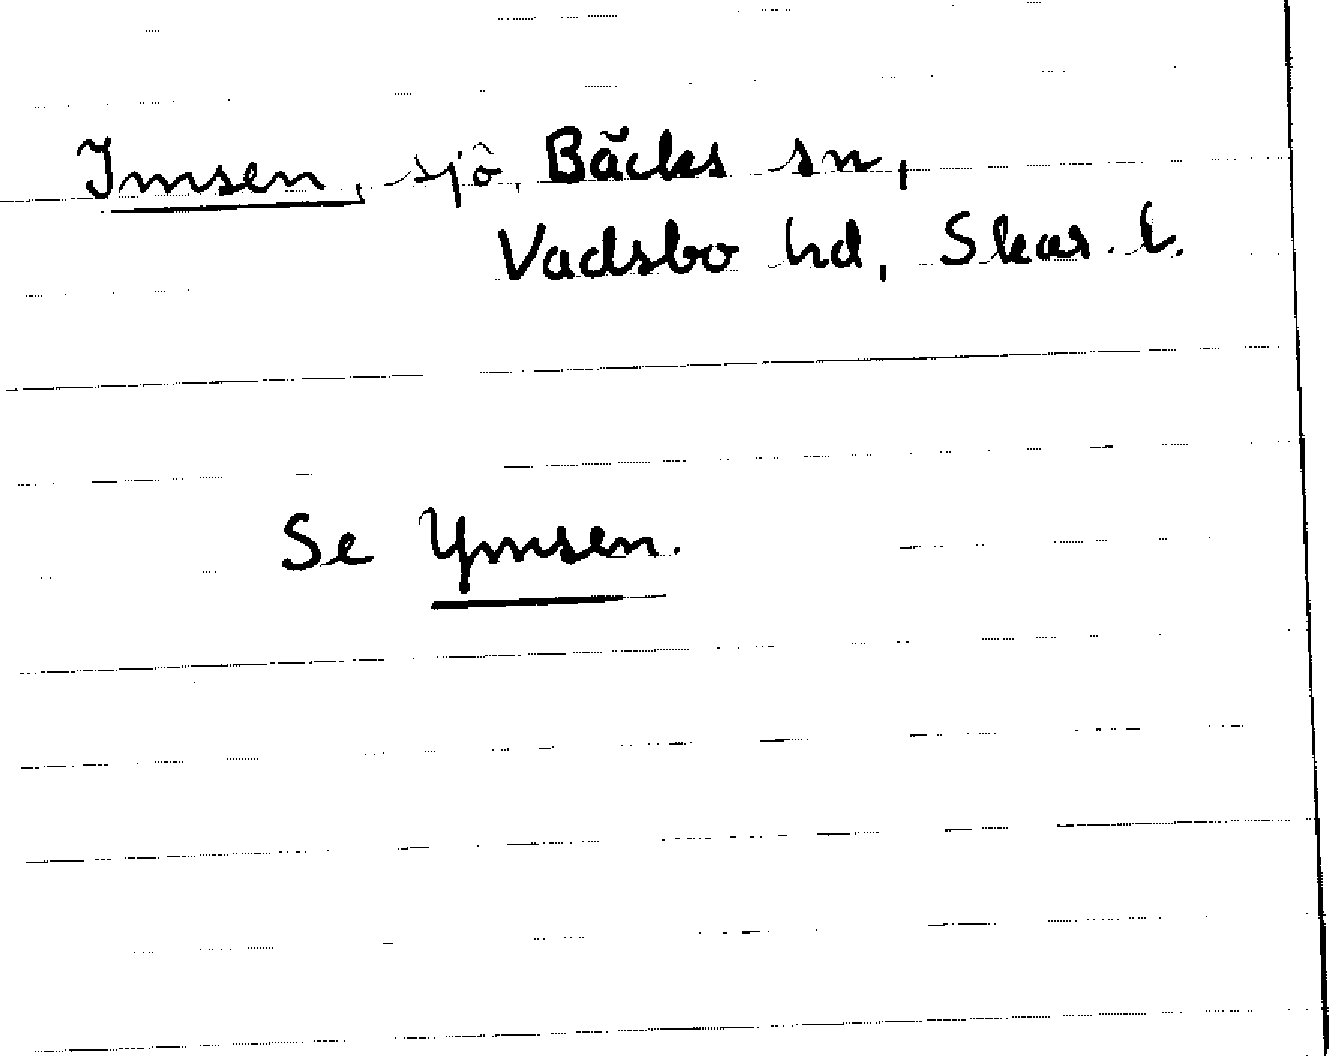 Imsen, sjö, Bäcks sn,
Vadsbo hd, Skar. l.
Se Ymsen.